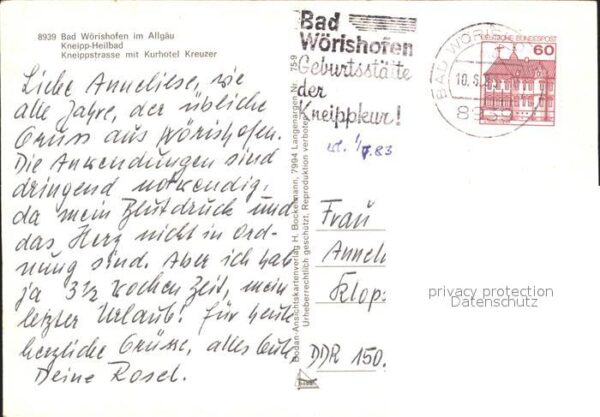 8939 Bad Wörishofen im Allgäu
Kneipp-Heilbad
Kneippstrasse mit Kurhotel Kreuzer
Liebe Anneliese, wie
alle Jahre, der übliche
Gruss aus Wörishofen.
Die Anwendungen sind
dringend notwendig,
da mein Blutdruck und
das Herz nicht in Ord-
nung sind. Aber ich hab
ja 3½ Wochen Zeit, mein
letzter Urlaub! Für heute
herzliche Grüsse, alles Gute
Deine Rosel.
Bodan-Ansichtskartenverlag H. Bockelmann, 7994 Langenargen Nr. 75-9
Urheberrechtlich geschützt, Reproduktion verboten
Bad
Wörishofen
Geburtsstätte
der
Kneippkur!
BAD WÖRIS
10.6.
8939
DEUTSCHE BUNDESPOST
60
1/7.83
Frau
Annel
Klops
DDR 150.
privacy protection
Datenschutz